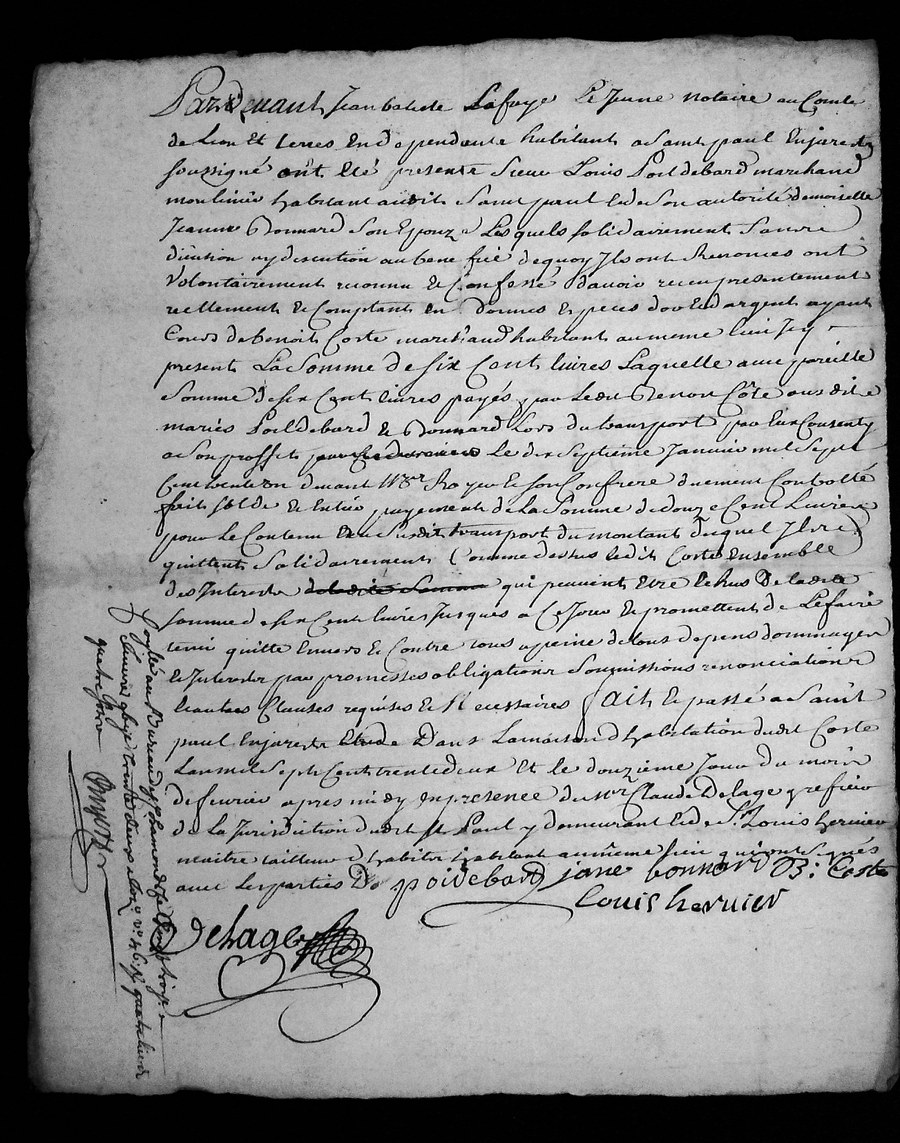 Pardevant Jean batiste Lafaye Le Jeune notaire au Comté
de Lion Et terres En dependente habitant a Saint paul Enjarest
soussigné ont Eté presente Sieur Louis Poildebard marchand
moulinie habitant audit Saint paul Et de Son autorité demoiselle
Jeanne Bonnard Son Epouze Lesquels solidairement Sans
division ny discution au bene fice dequoy Ils ont Renonces ont
Volontairement reconnu Et Confessé d'avoir receu presentement
reellement Et Comptant En bonnes Especes d'or Et d'argent ayant
Cours de benoit Coste marchand habitant au meme lieu Icy
present La Somme de Six Cent livres Laquelle avec pareille
Somme de six Cent livres payés par Ledit Benoit Côte aus dit
mariés Poildebard Et Bonnard Lors du transport par Eux Consenty
a Son proffit Le dix Septième Janvier mil Sept
Cent trente un devant Mre Royer Et Son Confrere duement Controllé
fait solde Et Entier payement de La Somme de douze Cent Livres
pour Le Contenu Et au Susdit transport du montant duquel Ils
quittent Solidairement Comme dessus Ledit Coste Ensemble
des Interests de ladite Somme qui peuvent Etre Echus De ladite
Somme de six Cent livres Jusques a Ce Jour Et promettent de Le faire
tenir quitte Envers Et Contre tous a peine de tous depens dommages
Et Interests par promesses obligations Soumissions renonciations
Et autres Clauses requises Et Necessaires fait Et passé a Saint
paul Enjarest Dans La maison d'habitation dudit Coste
L'an mil Sept Cent trente deux Et le douzième Jour du mois
de fevrier apres midy En presence de Mre Claude Delage greffier
de La Jurisdiction dudit St Paul y demeurant Et de Sr Louis hervier
maitre tailleur d'habits habitant au même lieu qui ont Signés
avec Les parties
poidebard jane bonnard B. Coste
Louis hervier
Delage
au Bureau
fevrier trente deux